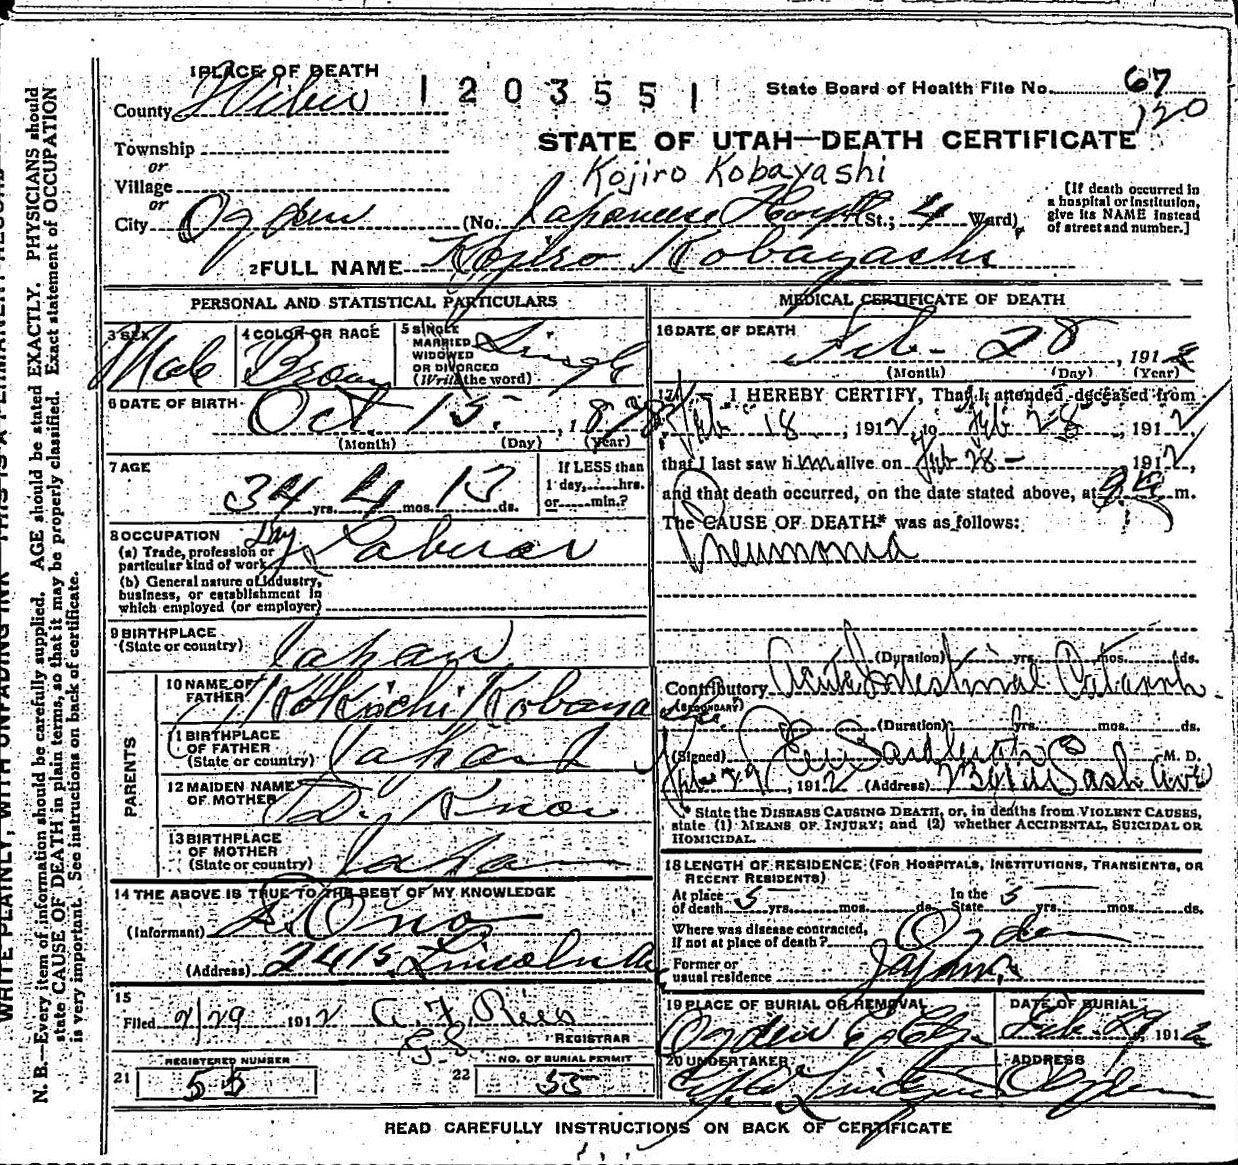 1 PLACE OF DEATH
1203551
State Board of Health File No. 67
120
County Weber
STATE OF UTAH—DEATH CERTIFICATE
Township
or
Village
or
Kojiro Kobayashi
City Ogden (No. Japanese St.; 4 Ward)
[If death occurred in
a hospital or institution,
give its NAME instead
of street and number.]
2 FULL NAME Kojiro Kobayashi
PERSONAL AND STATISTICAL PARTICULARS
3 SEX Male
4 COLOR OR RACE Brown
5 SINGLE
MARRIED
WIDOWED
OR DIVORCED
(Write the word) Single
6 DATE OF BIRTH Oct 15
(Month) (Day) (Year)
7 AGE
34 yrs. 4 mos. 13 ds.
If LESS than
1 day, hrs.
or min.?
8 OCCUPATION
(a) Trade, profession or
particular kind of work Day Laborer
(b) General nature of industry,
business, or establishment in
which employed (or employer)
9 BIRTHPLACE
(State or country) Japan
PARENTS
10 NAME OF
FATHER
11 BIRTHPLACE
OF FATHER
(State or country) Japan
12 MAIDEN NAME
OF MOTHER Dr Know
13 BIRTHPLACE
OF MOTHER
(State or country) Japan
14 THE ABOVE IS TRUE TO THE BEST OF MY KNOWLEDGE
(Informant) Ono
(Address) 2415 Lincoln
15
Filed 2/29 1912
REGISTRAR
REGISTERED NUMBER
NO. OF BURIAL PERMIT
21 55
22 55
MEDICAL CERTIFICATE OF DEATH
16 DATE OF DEATH
Feb- 28, 1912
(Month) (Day) (Year)
17 I HEREBY CERTIFY, That I attended deceased from
Feb 18, 1912, to Feb 28, 1912,
that I last saw him alive on Feb 28- 1912,
and that death occurred, on the date stated above, at m.
The CAUSE OF DEATH* was as follows:
Pneumonia
(Duration) yrs. mos. ds.
Contributory Acute Intestinal Catarrh
(SECONDARY)
(Duration) yrs. mos. ds.
(Signed) M. D.
Feb 29, 1912 (Address) Wash Ave
* State the DISEASE CAUSING DEATH, or, in deaths from VIOLENT CAUSES,
state (1) MEANS OF INJURY; and (2) whether ACCIDENTAL, SUICIDAL OR
HOMICIDAL.
18 LENGTH OF RESIDENCE (FOR HOSPITALS, INSTITUTIONS, TRANSIENTS, OR
RECENT RESIDENTS)
At place
of death 5 yrs. mos. ds.
In the
State 5 yrs. mos. ds.
Where was disease contracted,
If not at place of death? Ogden
Former or
usual residence Japan
19 PLACE OF BURIAL OR REMOVAL
Ogden
DATE OF BURIAL
Feb 29 1912
20 UNDERTAKER
ADDRESS
Ogden
READ CAREFULLY INSTRUCTIONS ON BACK OF CERTIFICATE
WRITE PLAINLY, WITH UNFADING INK—THIS IS A PERMANENT RECORD
N. B.—Every item of information should be carefully supplied. AGE should be stated EXACTLY. PHYSICIANS should
state CAUSE OF DEATH in plain terms, so that it may be properly classified. Exact statement of OCCUPATION
is very important. See instructions on back of certificate.